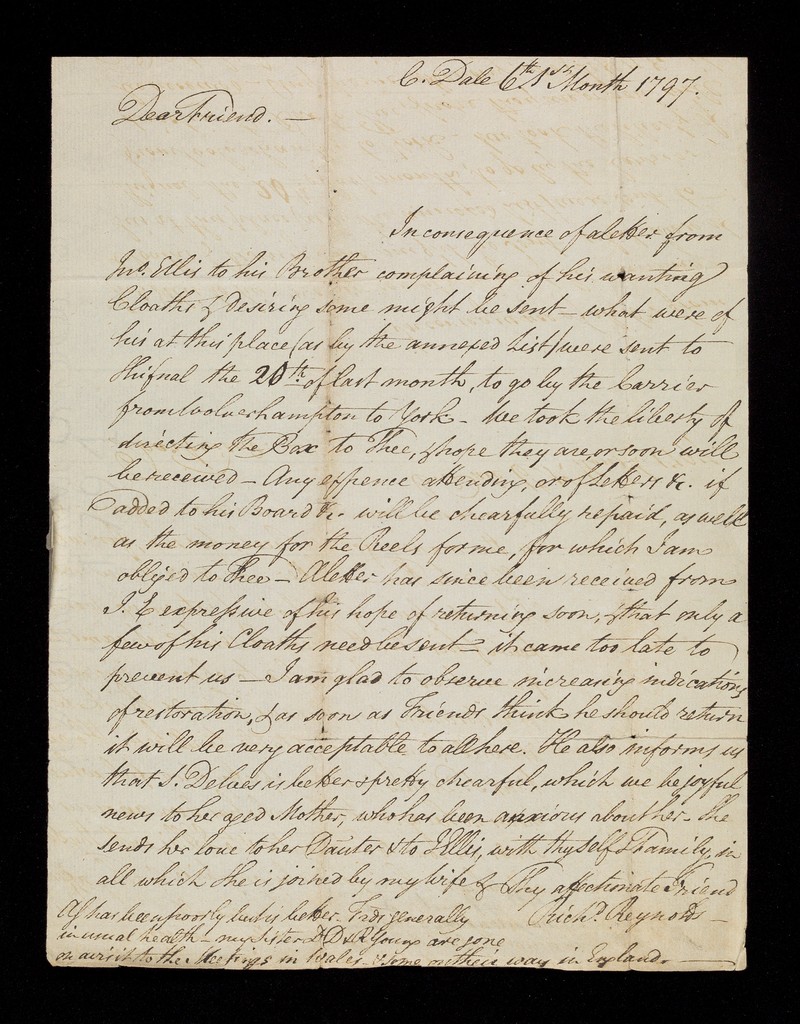 C. Dale 6th 1st Month 1797.
Dear Friend. —
In consequence of a letter from
Jno. Ellis to his Brother complaining of his wanting
Cloaths & desiring some might be sent — what were of
his at this place (as by the annexed List) were sent to
Shifnal the 20th of last month, to go by the Carrier
from Wolverhampton to York — We took the liberty of
directing the Box to Thee, & hope they are, or soon will
be received — Any expence attending, or of Letters &c. if
added to his Board &c. will be chearfully repaid, as well
as the money for the Reels for me, for which I am
obliged to Thee — A letter has since been received from
J. E expressive of his hope of returning soon, & that only a
few of his Cloaths need be sent — it came too late to
prevent us — I am glad to observe increasing indications
of restoration, & as soon as Friends think he should return
it will be very acceptable to all here. He also informs us
that S. Delves is better & pretty chearful, which we be joyful
news to her aged Mother, who has been anxious about her. She
sends her love to her Dauter & to J Ellis, with thyself & Family, in
all which She is joined by my wife & Thy affectionate Friend
Richd. Reynolds —
has been poorly but is better. Frds generally
in usual health — my Sister D D & R Young are gone
on a visit to the Meetings in Wales & some on their way in England. —